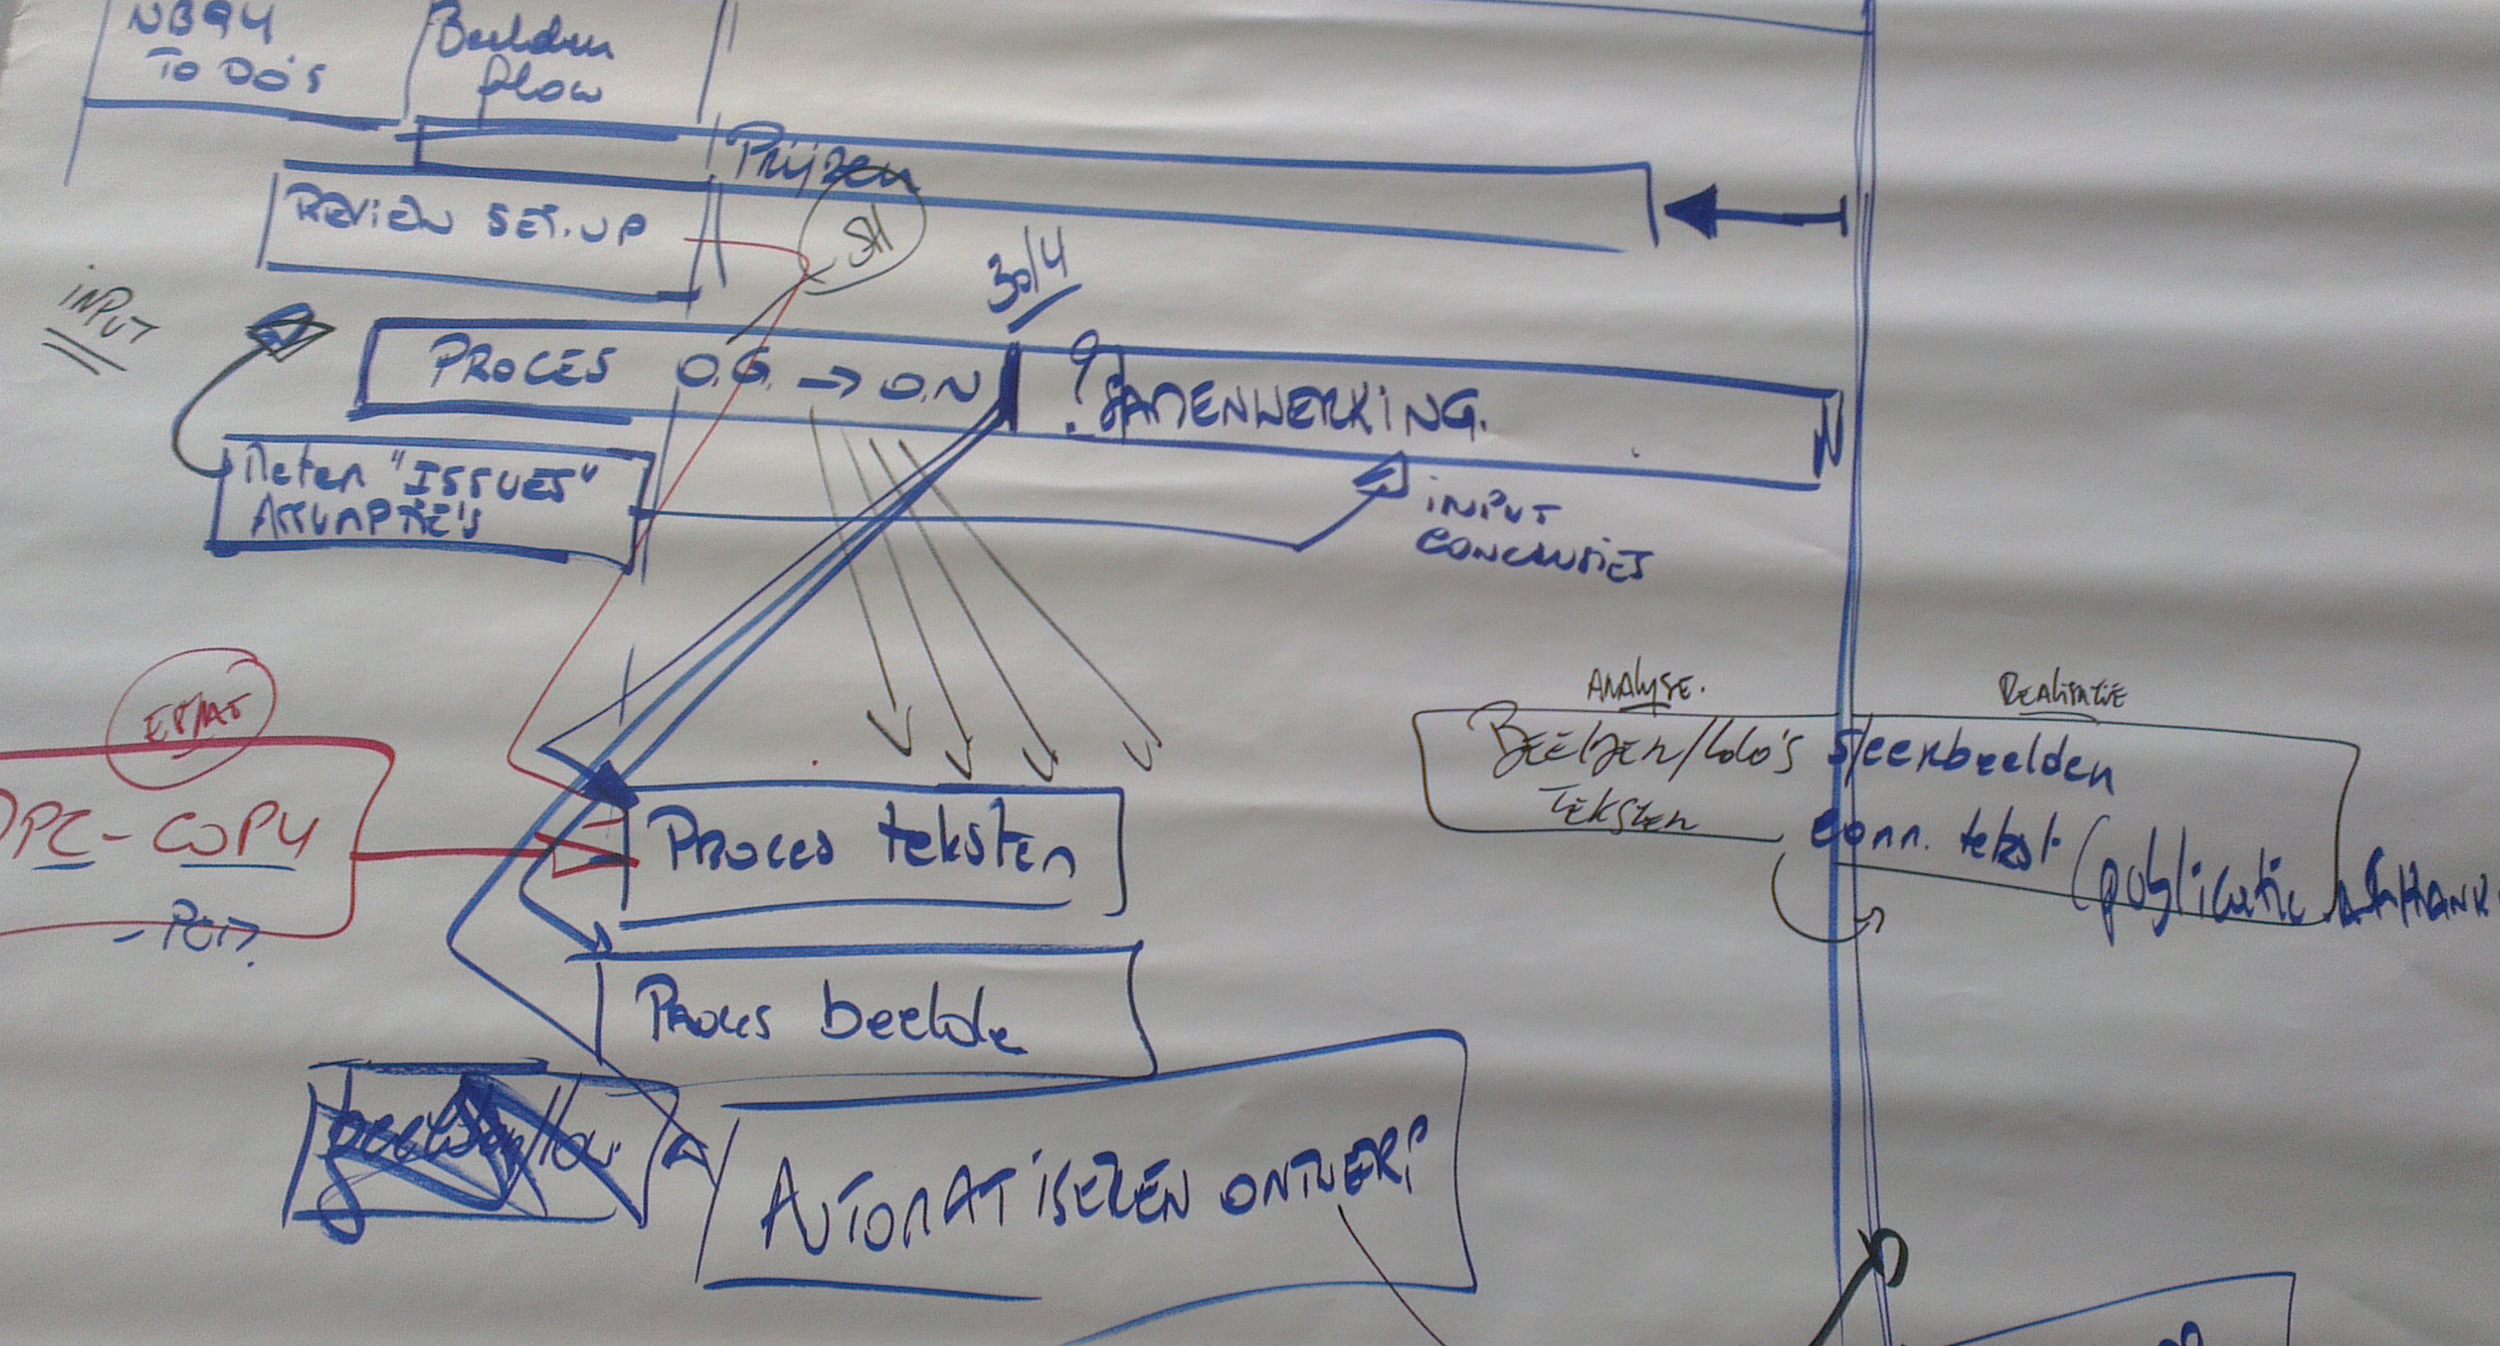 NB94
To Do's
Beelden
flow
Prijzen
REVIEW SET-UP
SH
30/4
INPUT
PROCES O.G. → O.N
? SAMENWERKING.
!
Meten "ISSUES"
ASSUMPTIE'S
INPUT
CONCLUSIES
ANALYSE.
REALISATIE
BEELDEN/LOGO'S
TEKSTEN
Steekbeelden
Conn. tekst (publicatie
PC-COPY
PROCES teksten
PROCES beelde
AUTOMATISEREN ONTWERP